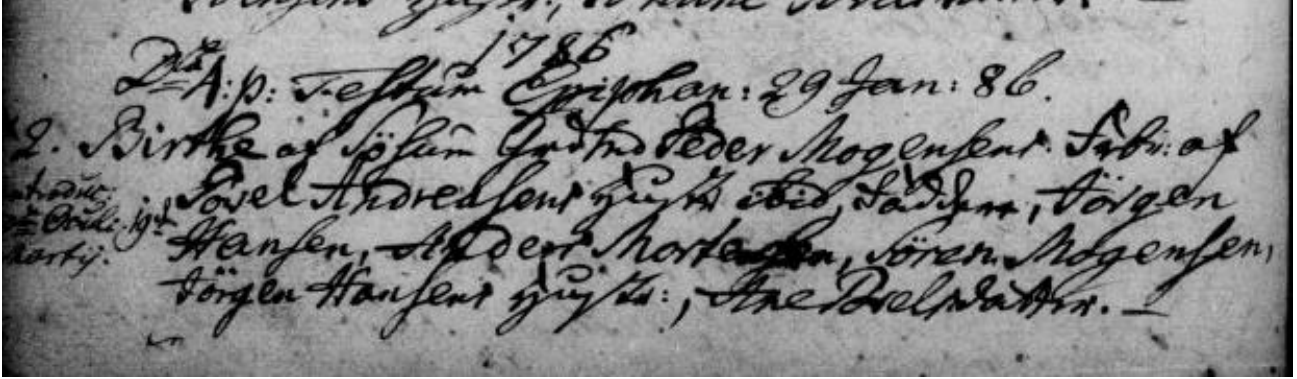 1786
Dca 4: p: Festum Epiphan: 29 Jan: 86.
2. Birthe af Söhum Peder Mogensens frbr: af
Povel Andreasens Hustr: ibid, Faddere, Jörgen
Hansen, Anders Mortensen, Sören Mogensen,
Jörgen Hansens Hustr:, Ane Povelsdatter. —
introduc:
Oculi 19de
Martij.